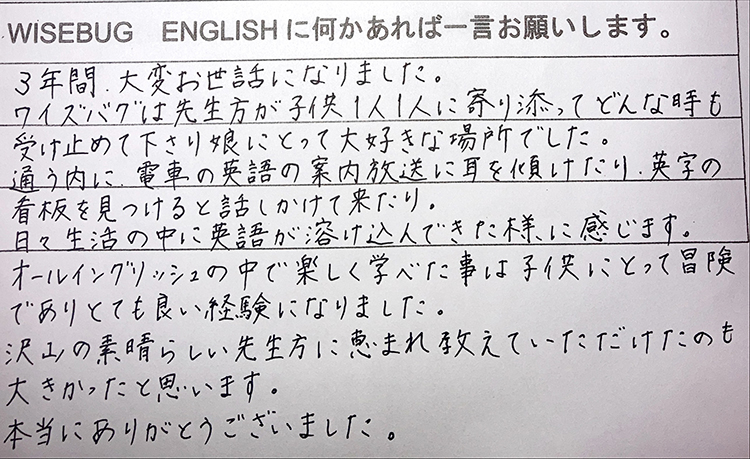 WiSEBUG ENGLISHに何かあれば一言お願いします。
3年間、大変お世話になりました。
ワイズバグは先生方が子供1人1人に寄り添ってどんな時も
受け止めて下さり娘にとって大好きな場所でした。
通う内に、電車の英語の案内放送に耳を傾けたり、英字の
看板を見つけると話しかけて来たり。
日々生活の中に英語が溶け込んできた様に感じます。
オールイングリッシュの中で楽しく学べた事は子供にとって冒険
でありとても良い経験になりました。
沢山の素晴らしい先生方に恵まれ教えていただけたのも
大きかったと思います。
本当にありがとうございました。